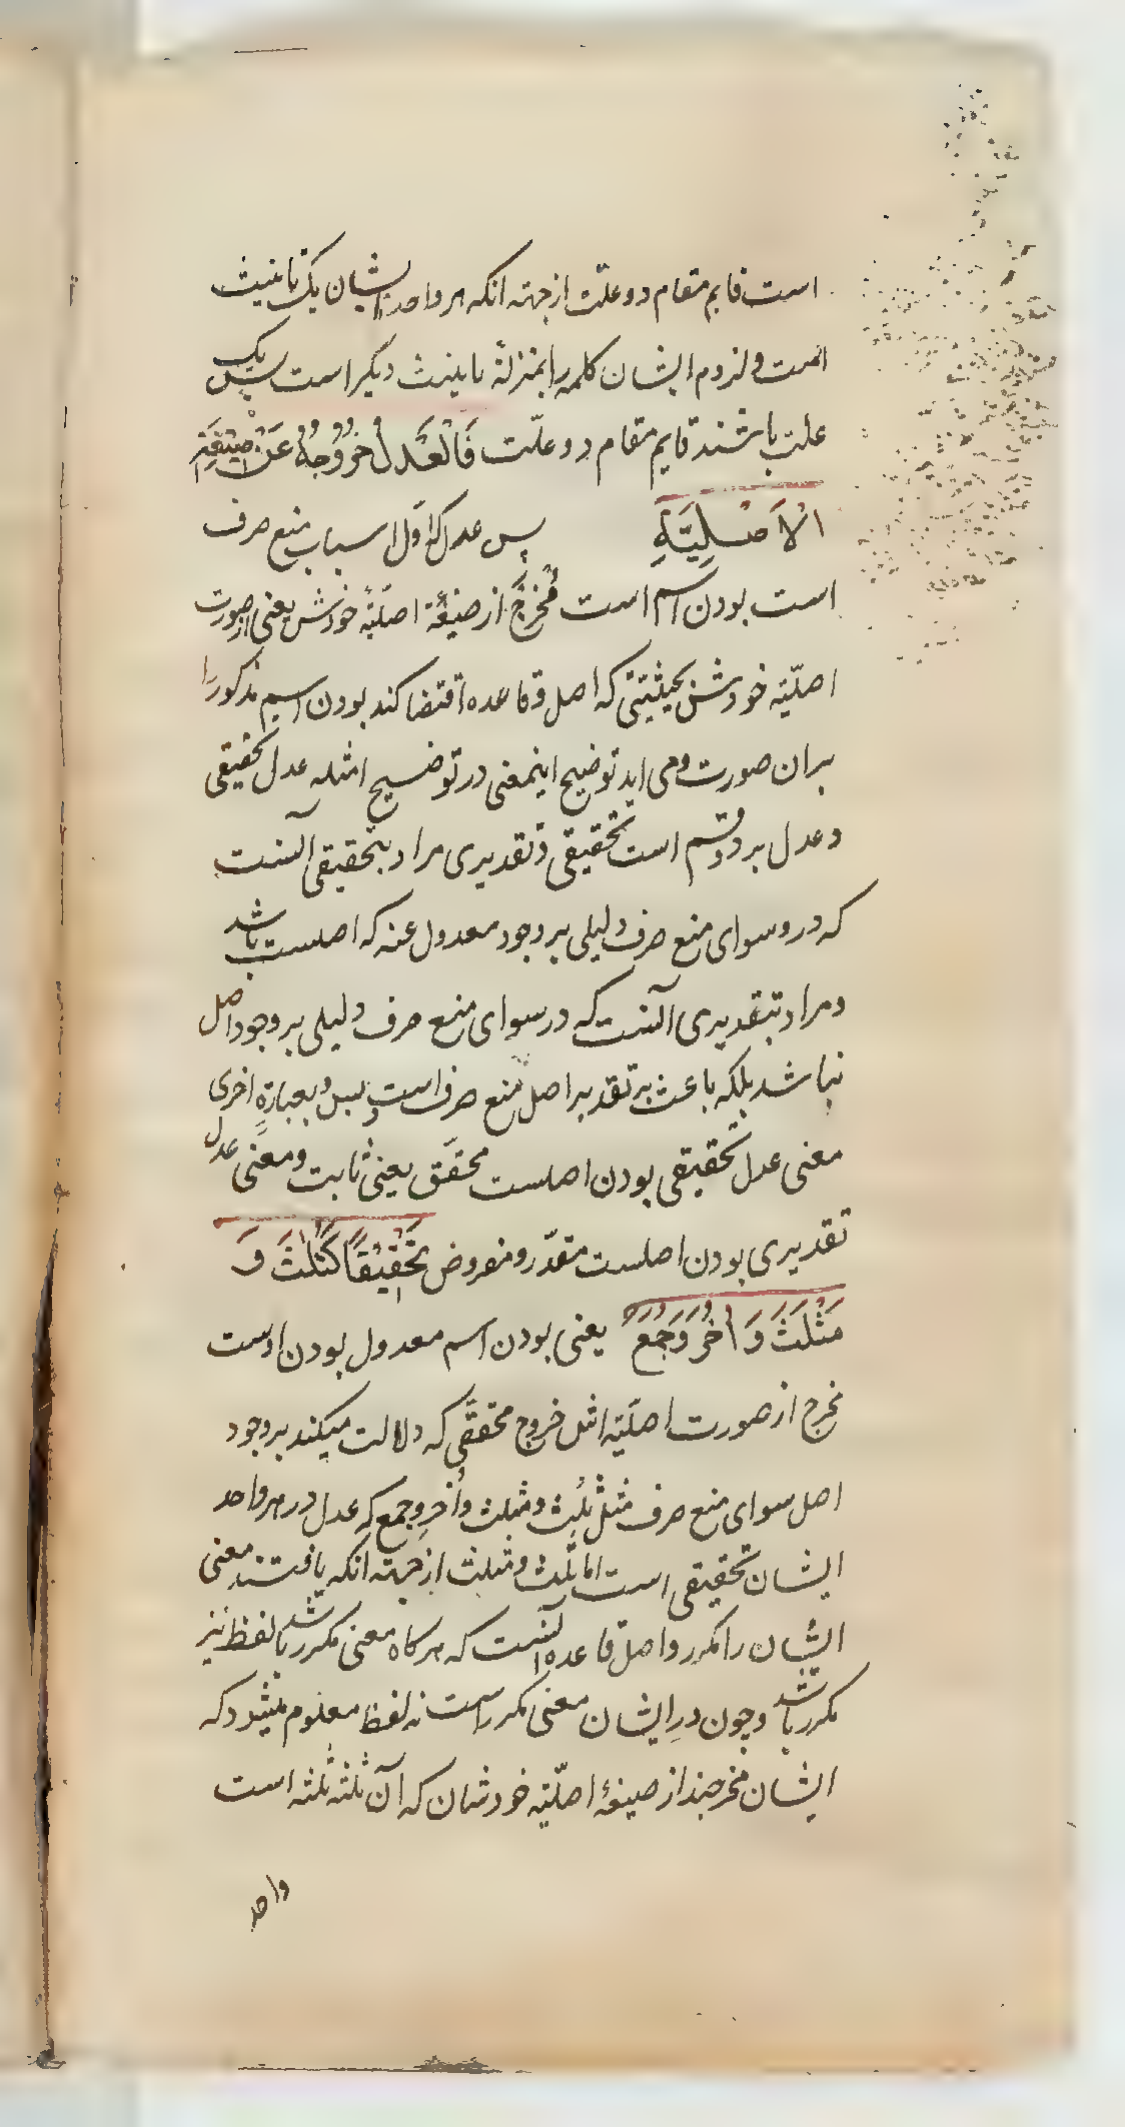 است قایم مقام دو علّت از جهته انکه هر واحد ایشان یک تانیث
است و لزوم ایشان کلمه را بمنزلهٔ تانیث دیکر است پس یک
علت باشند قایم مقام دو علّت فَالْعَدْلُ خُرُوْجُهُ عَنْ صِیْغَتِهِ
الْاَصْلِیَّةِ پس عدل که اوّل اسباب منع صرف
است بودن اسم است مُخْرَجْ از صیغهٔ اصلیّهٔ خودش یعنی از صورت
اصلیّهٔ خودش بحیثیتی که اصل و قاعده اقتضا کند بودن اسم مذکور را
بران صورت و می اید توضیح اینمعنی در توضیح امثله عدل تحقیقی
و عدل بر دو قسم است تحقیقی و تقدیری مراد بتحقیقی آنست
که درو سوای منع صرف دلیلی بر وجود معدول عنه که اصلست باشد
و مراد بتقدیری آنست که در سوای منع صرف دلیلی بر وجود اصل
نباشد بلکه باعث بر تقدیر اصل منع صرف است و بس و بعبارةٍ اخری
معنی عدل تحقیقی بودن اصلست محقّق یعنی ثابت و معنی عدل
تقدیری بودن اصلست مقدّر و مفروض تَحْقِیْقًا کَثُلٰثَ وَ
مَثْلَثَ وَ اُخَرَ وَ جُمَعَ یعنی بودن اسم معدول بودن اوست
مخرج از صورت اصلیّه اش خروج محققی که دلالت میکند بر وجود
اصل سوای منع صرف مثل ثلث و مثلث و اُخر و جمع که عدل در هر واحد
ایشان تحقیقی است اما ثلث و مثلث از جهته انکه یافتند معنی
ایشان را مکرر و اصل قاعده آنست که هر کاه معنی مکرر باشد لفظ نیز
مکرر باشد و چون در ایشان معنی مکرر است نه لفظ معلوم میشود که
ایشان مخرجند از صیغهٔ اصلیّه خودشان که آن ثلثه ثلثه است
واحد